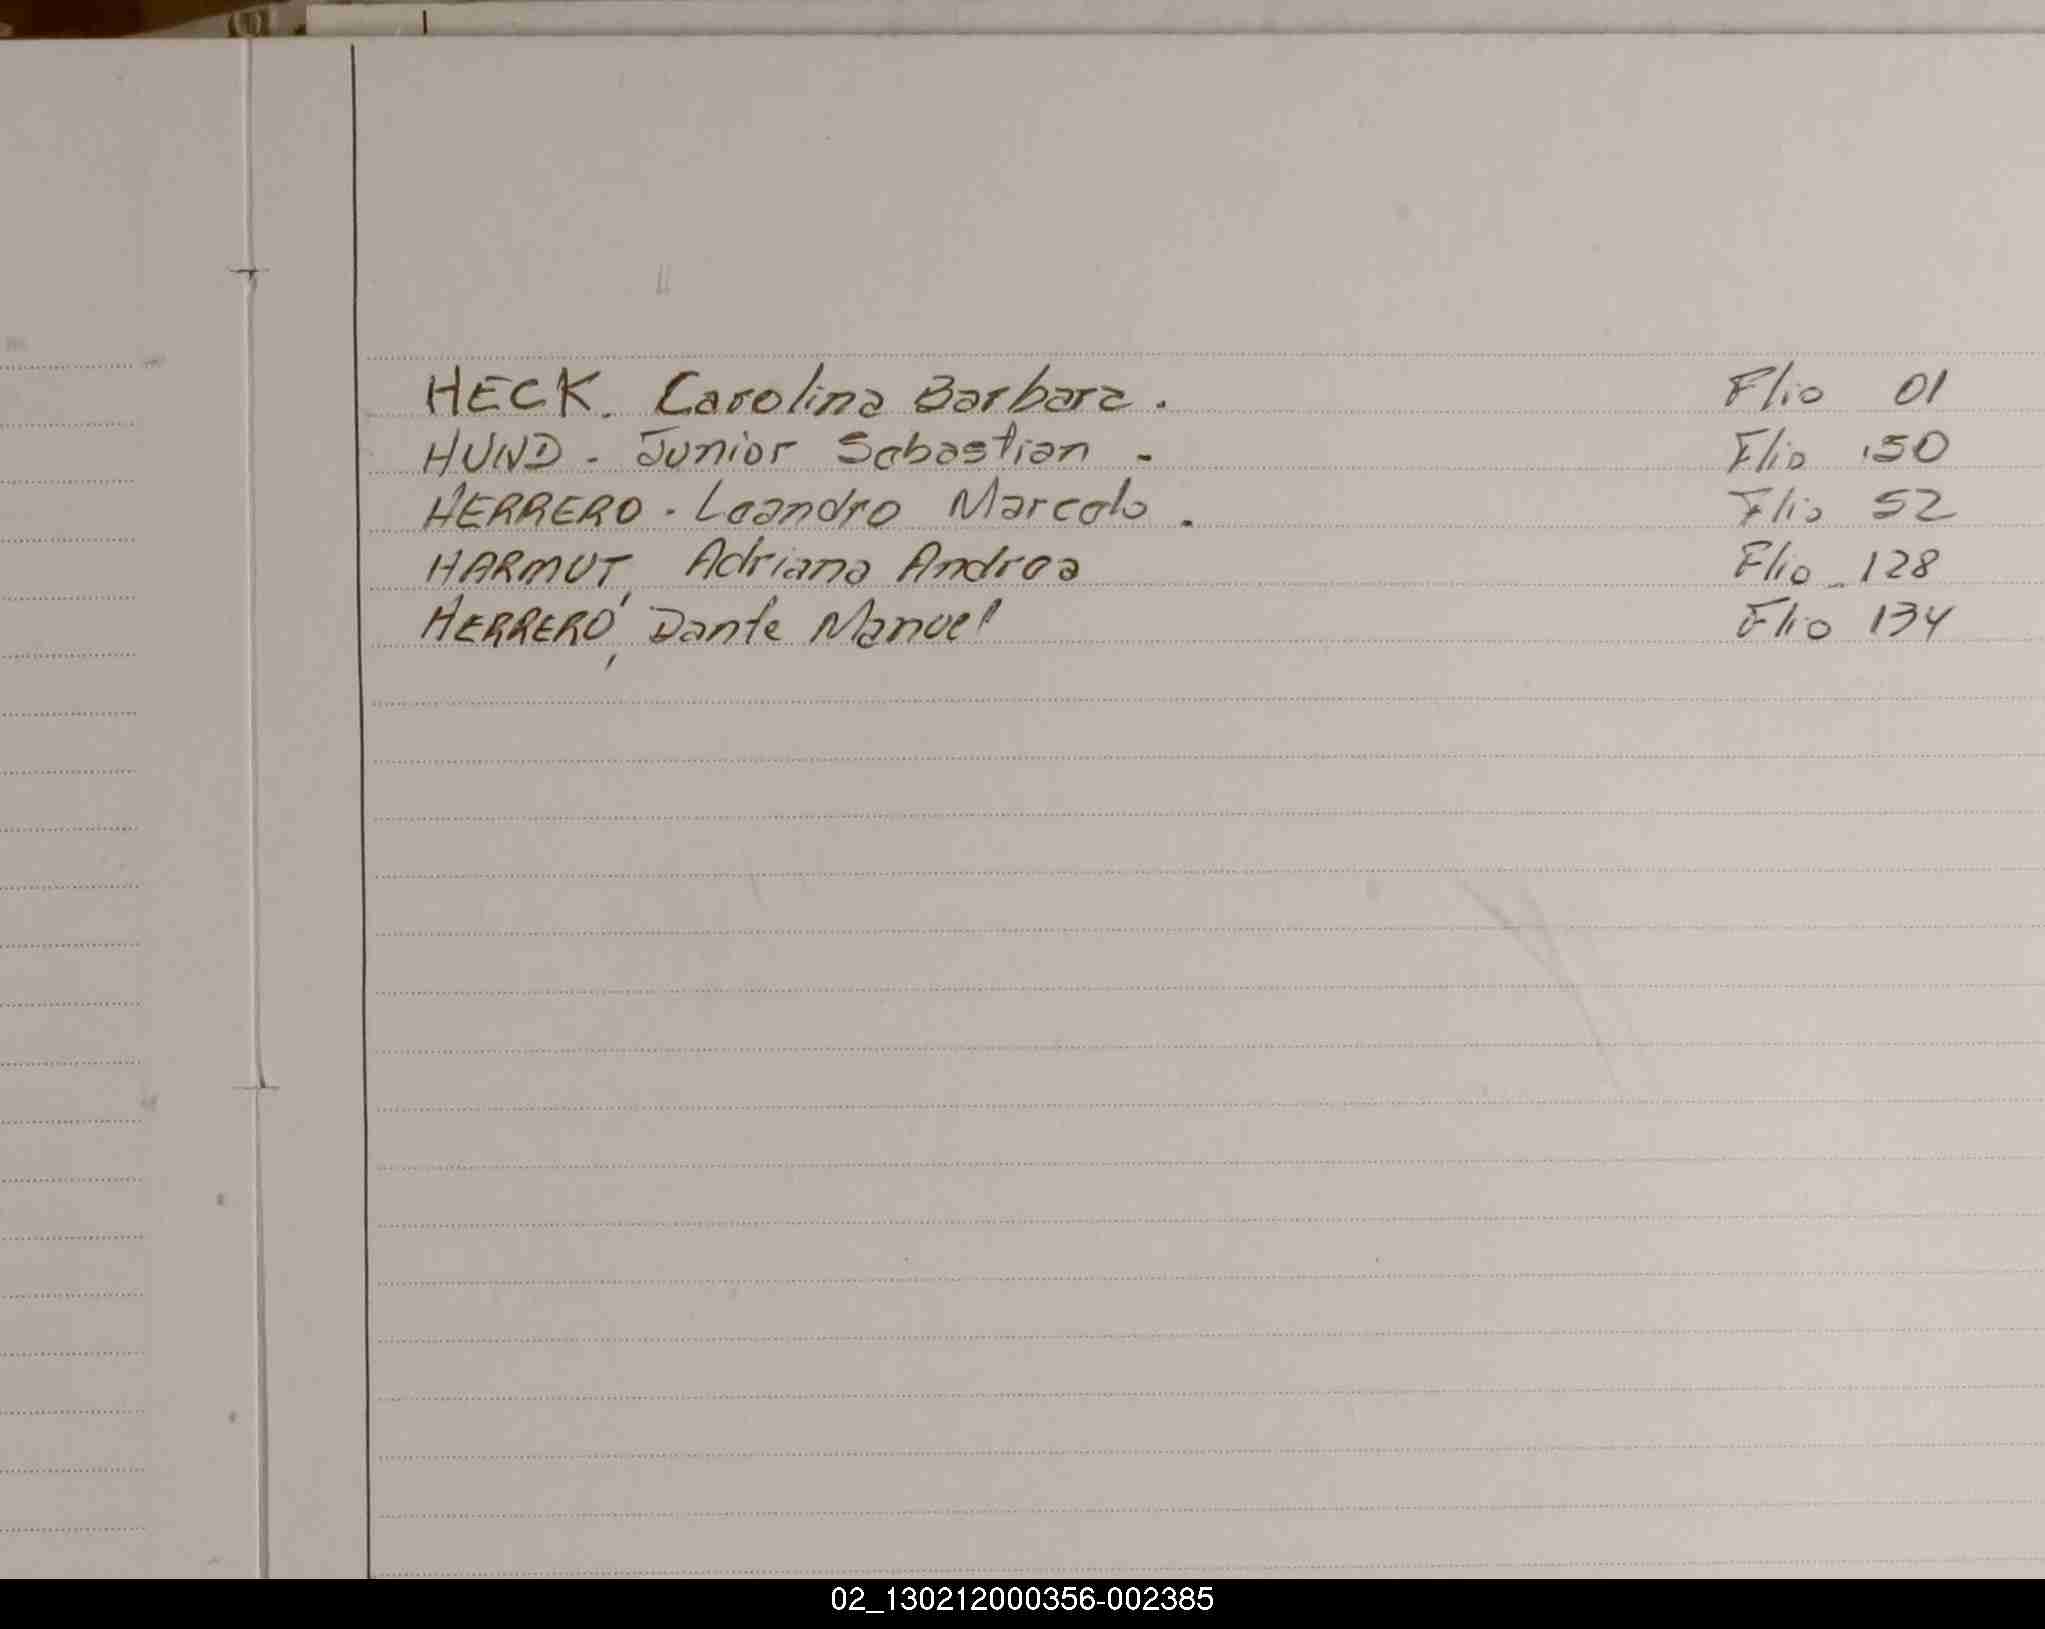 HECK. Carolina Barbara. Flio 01
HUND - Junior Sebastian - Flio 50
HERRERO - Leandro Marcelo. Flio 52
HARMUT, Adriana Andrea Flio 128
HERRERO, Dante Manuel Flio 134
02_130212000356-002385